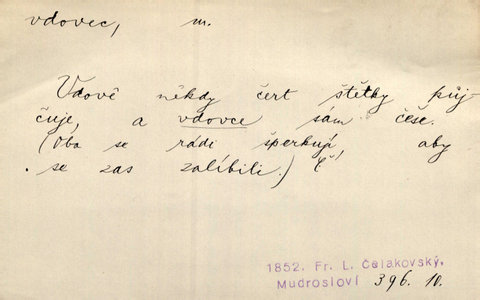 vdovec, m.
Vdově někdy čert štětky půj-
čuje, a vdovce sám češe.
(Oba se rádi šperkují, aby
se zas zalíbili.) Č
1852. Fr. L. Čelakovský,
Mudrosloví 396. 10.